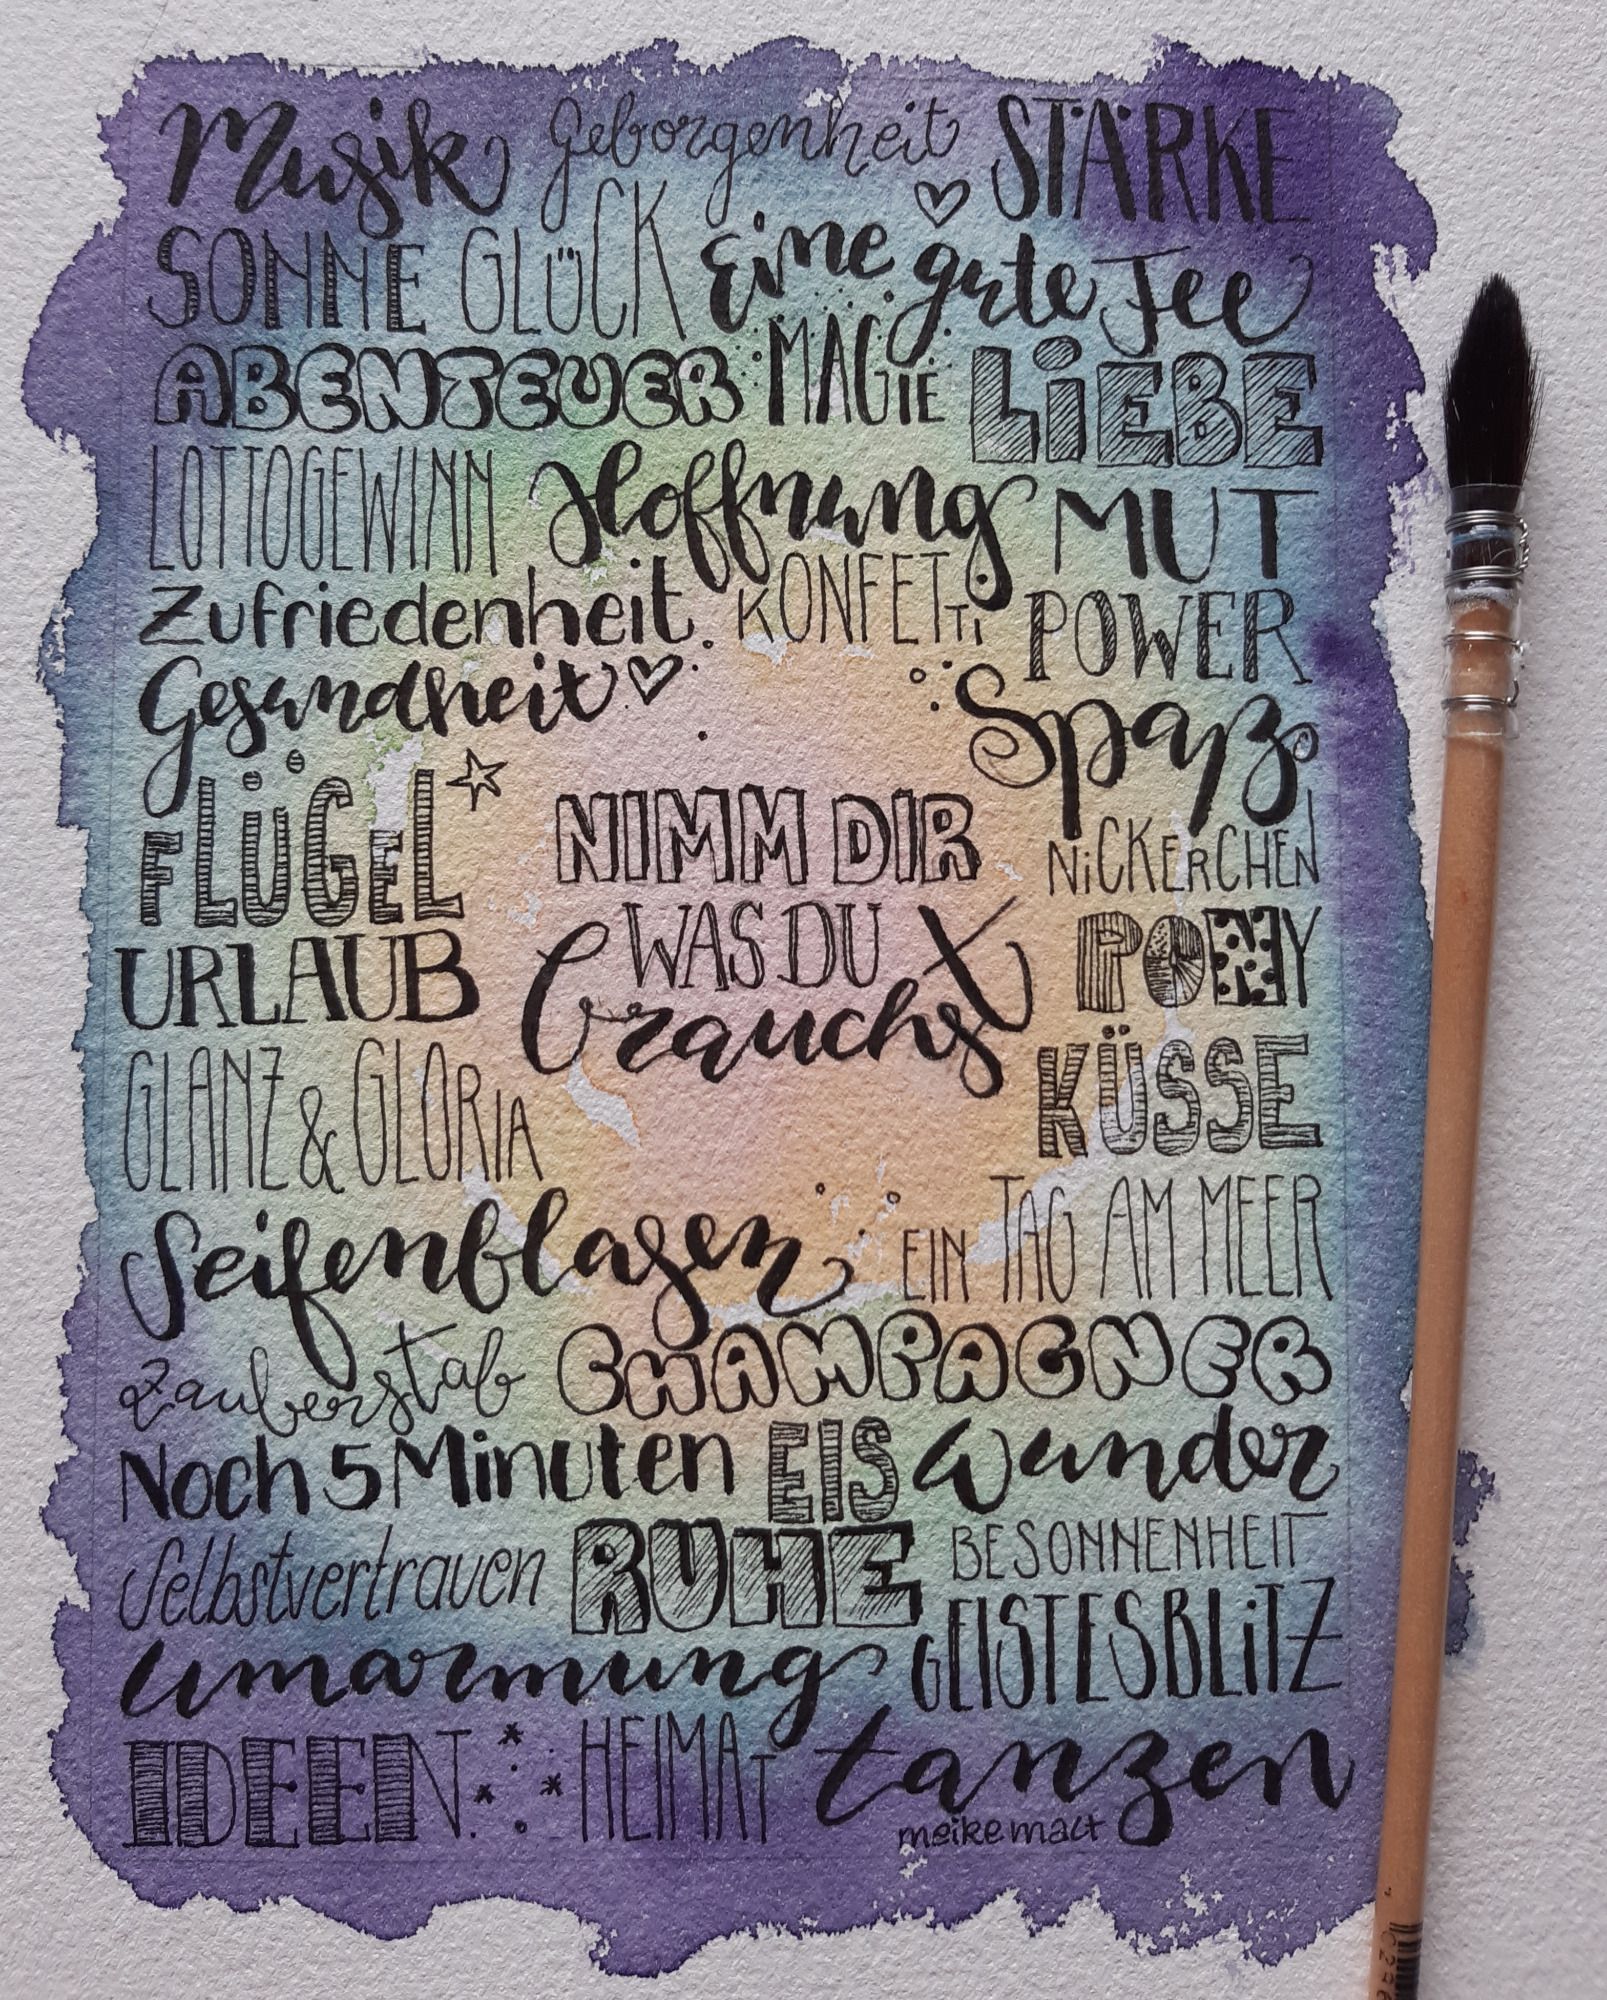 Musik Geborgenheit STÄRKE
SONNE GLÜCK Eine gute Fee
ABENTEUER MAGIE LiEBE
LOTTOGEWINN Hoffnung MUT
Zufriedenheit KONFETTi POWER
Gesundheit Spaß
FLÜGEL NiCKERCHEN
NIMM DIR
WAS DU
brauchst
URLAUB PONY
GLANZ & GLORIA KÜSSE
Seifenblasen EIN TAG AM MEER
Zauberstab CHAMPAGNER
Noch 5 Minuten EIS Wunder
Selbstvertrauen RUHE BESONNENHEIT
Umarmung GEISTESBLiTZ
IDEEN HEIMAT tanzen
meikemalt